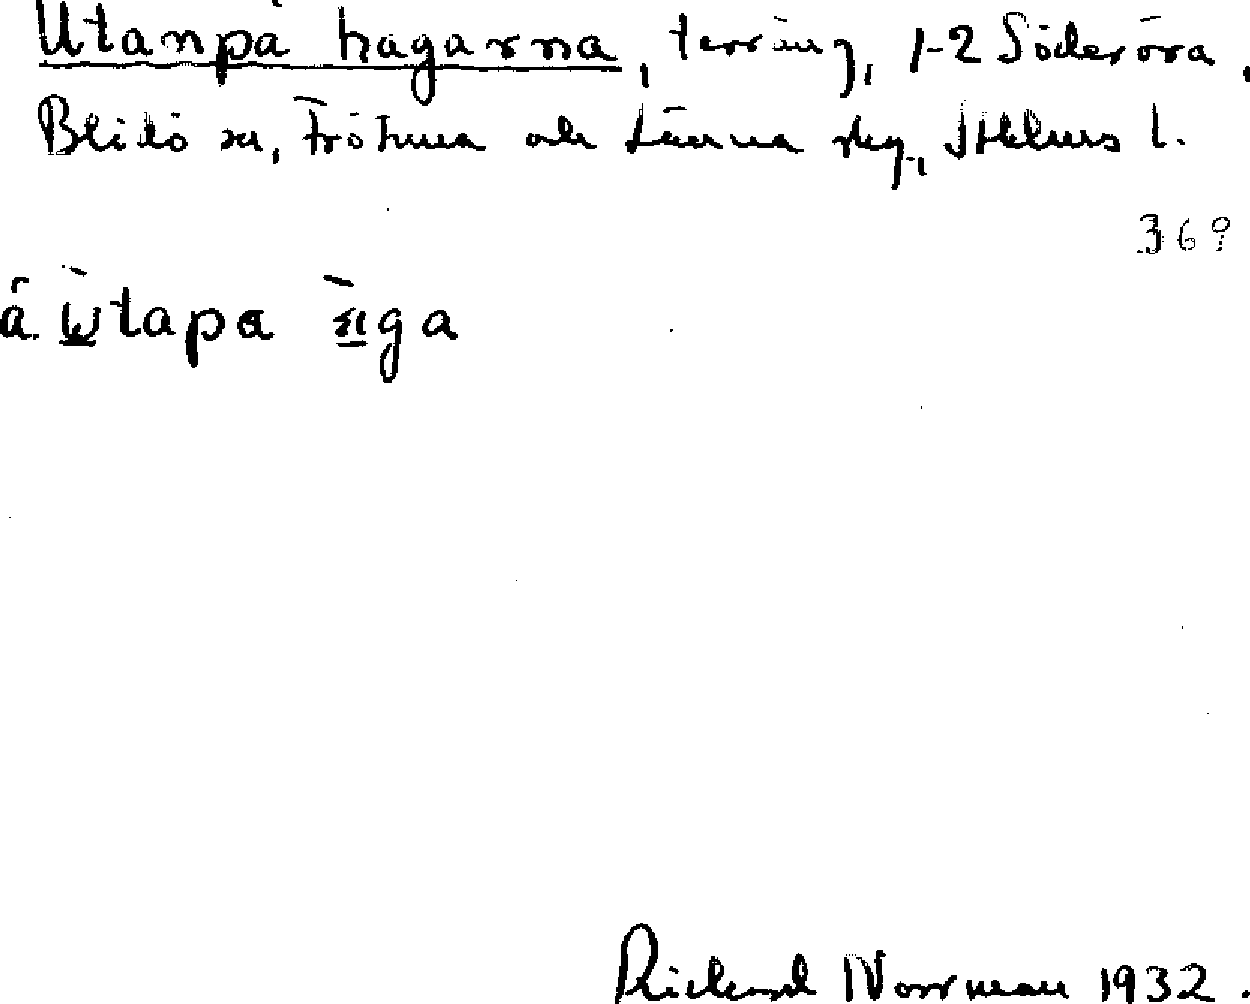 Utanpå hagarna, terräng, 1-2 Söderöra,
Blidö sn, Frötuna och Länna skg, Sthlms l.
369
Rickard Norrman 1932.